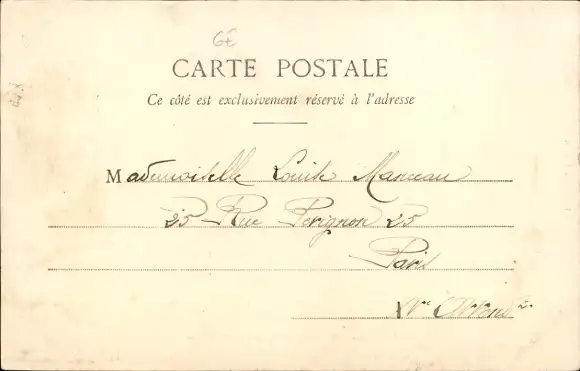 GE
CARTE POSTALE
Ce côté est exclusivement réservé à l'adresse
Mademoiselle Louise Manceau
25 Rue Pérignon 25
Paris
XVe Arrond